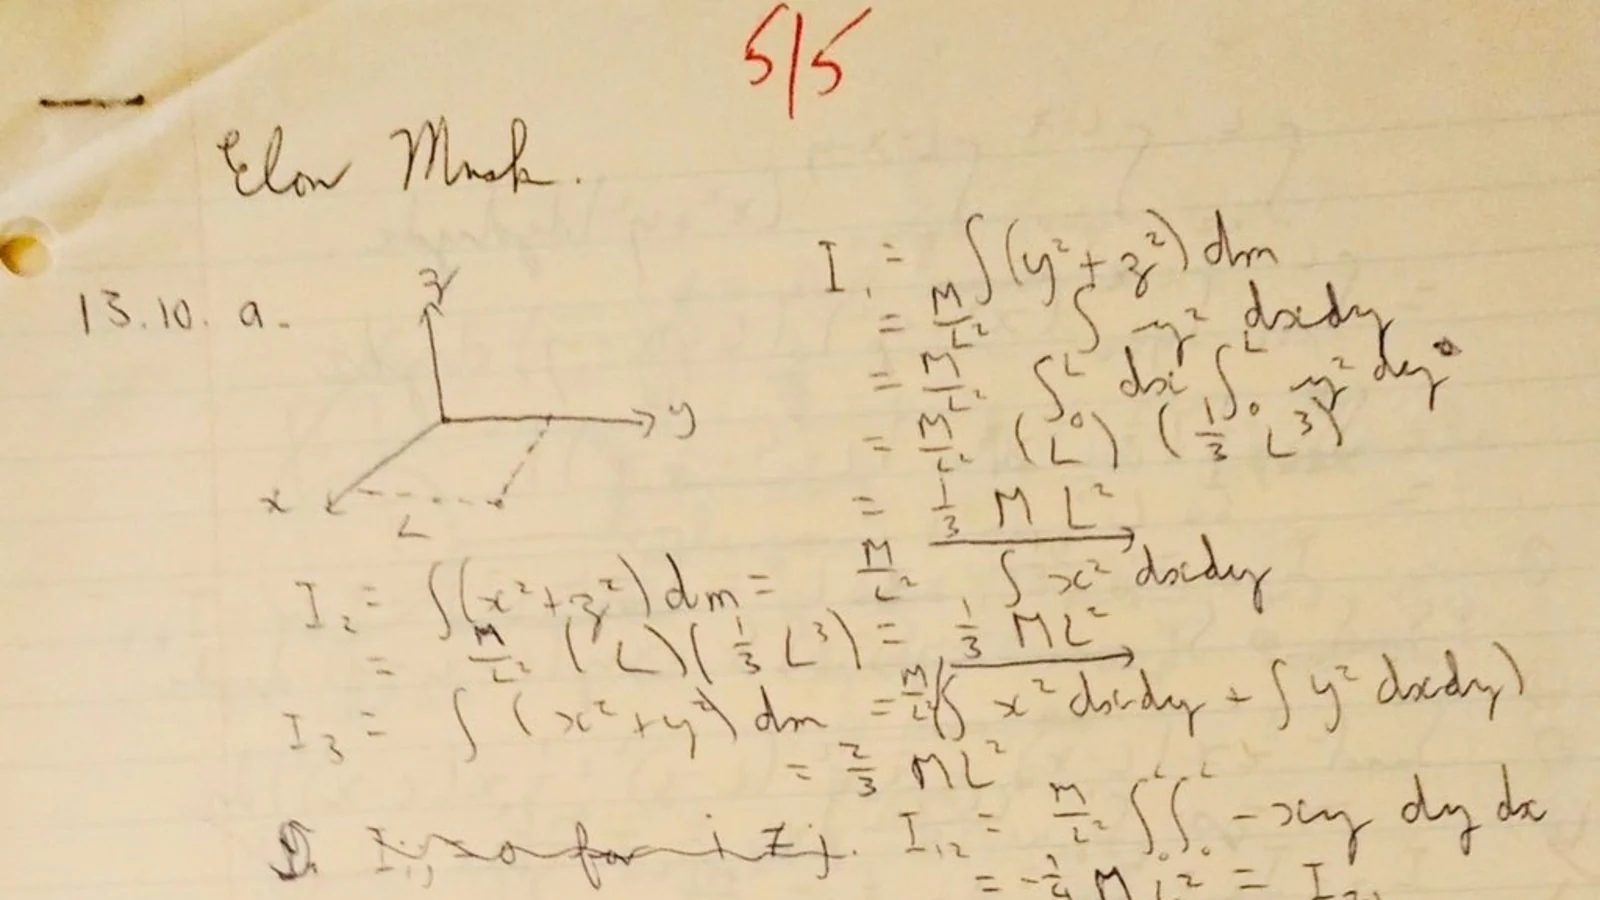 5/5
Elon Musk.
13.10. a.
z
y
x
L
I₁ = ∫(y² + z²) dm
= M/L² ∫ y² dxdy
= M/L² ∫₀ᴸ dx ∫₀ᴸ y² dy
= M/L² (L) (1/3 L³)
= 1/3 M L²
I₂ = ∫(x² + z²) dm = M/L² ∫ x² dxdy
= M/L² (L)(1/3 L³) = 1/3 ML²
I₃ = ∫ (x² + y²) dm = M/L² (∫ x² dxdy + ∫ y² dxdy)
= 2/3 ML²
for i ≠ j. I₁₂ = M/L² ∫₀ᴸ ∫₀ᴸ - xy dy dx
= -1/4 M L² = I₂₁